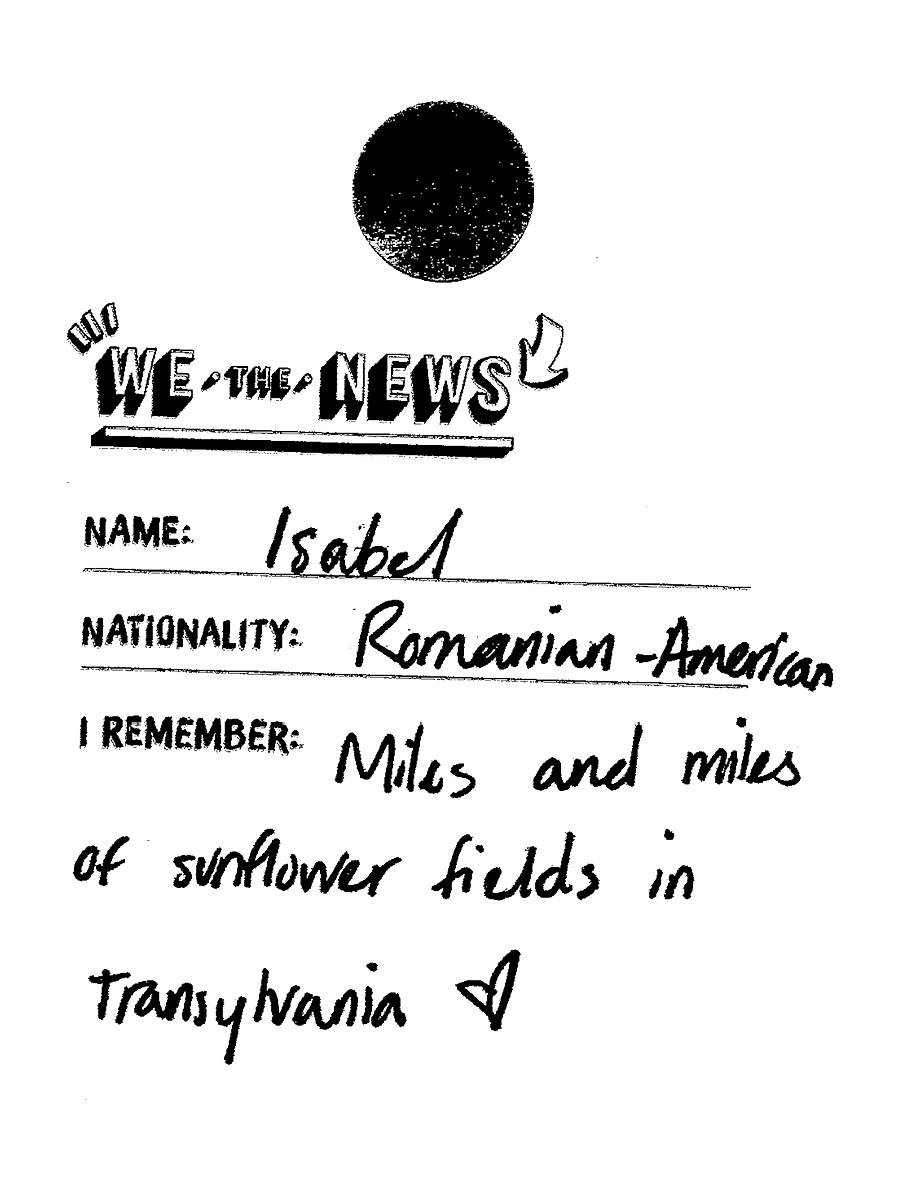 WE THE NEWS
NAME: Isabel
NATIONALITY: Romanian-American
I REMEMBER: Miles and miles
of sunflower fields in
Transylvania ♡